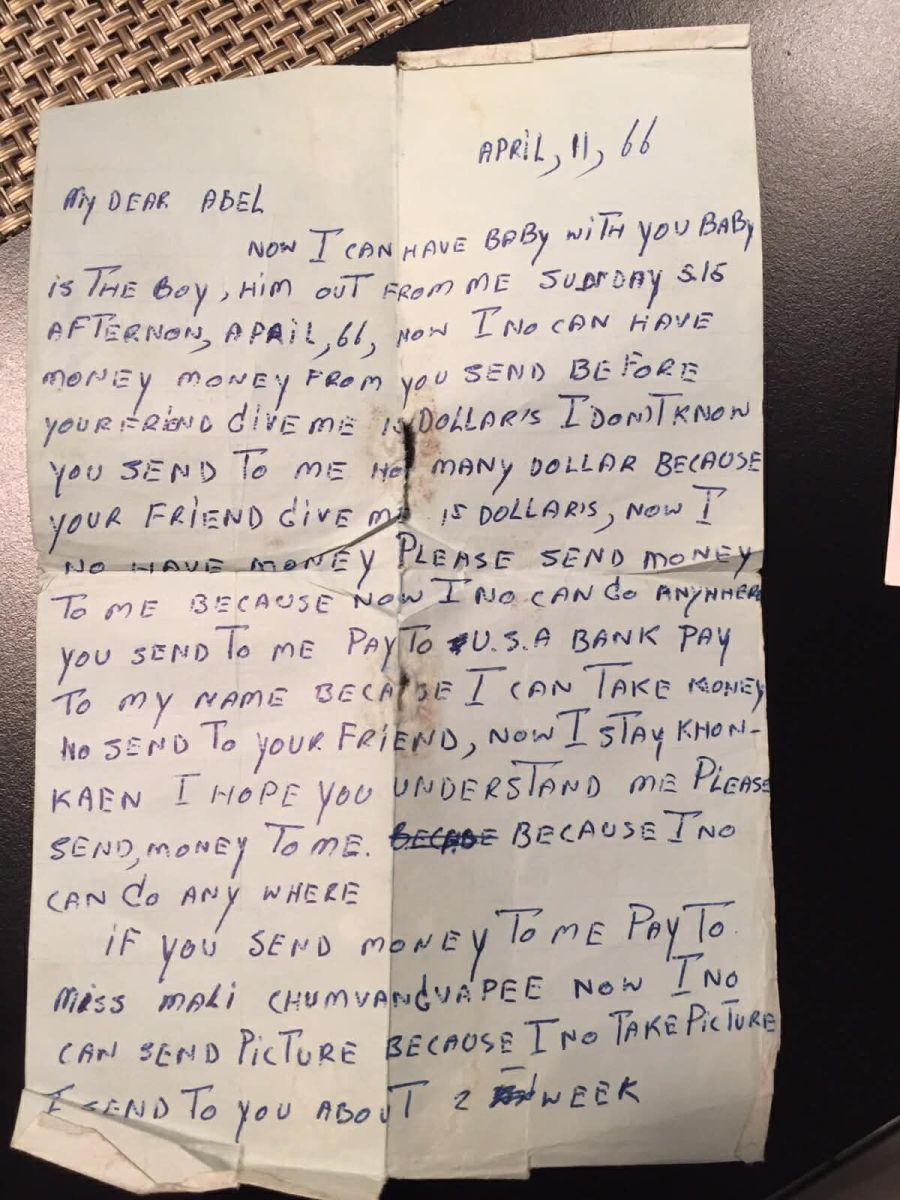 APRIL, 11, 66
MY DEAR ABEL
NOW I CAN HAVE BABY WITH YOU BABY
IS THE BOY, HIM OUT FROM ME SUNDAY 5.15
AFTERNON, APRIL, 66, NOW I NO CAN HAVE
MONEY MONEY FROM YOU SEND BEFORE
YOUR FRIEND GIVE ME 15 DOLLAR'S I DON'T KNOW
YOU SEND TO ME MANY DOLLAR BECAUSE
YOUR FRIEND GIVE ME 15 DOLLAR'S, NOW I
NO HAVE MONEY PLEASE SEND MONEY
TO ME BECAUSE NOW I NO CAN GO ANYWHERE
YOU SEND TO ME PAY TO U.S.A BANK PAY
TO MY NAME BECAUSE I CAN TAKE MONEY
NO SEND TO YOUR FRIEND, NOW I STAY KHON-
KAEN I HOPE YOU UNDERSTAND ME PLEASE
SEND, MONEY TO ME. BECAUSE I NO
CAN GO ANY WHERE
IF YOU SEND MONEY TO ME PAY TO
MISS MALI CHUMVANGVAPEE NOW I NO
CAN SEND PICTURE BECAUSE I NO TAKE PICTURE
I SEND TO YOU ABOUT 2 WEEK